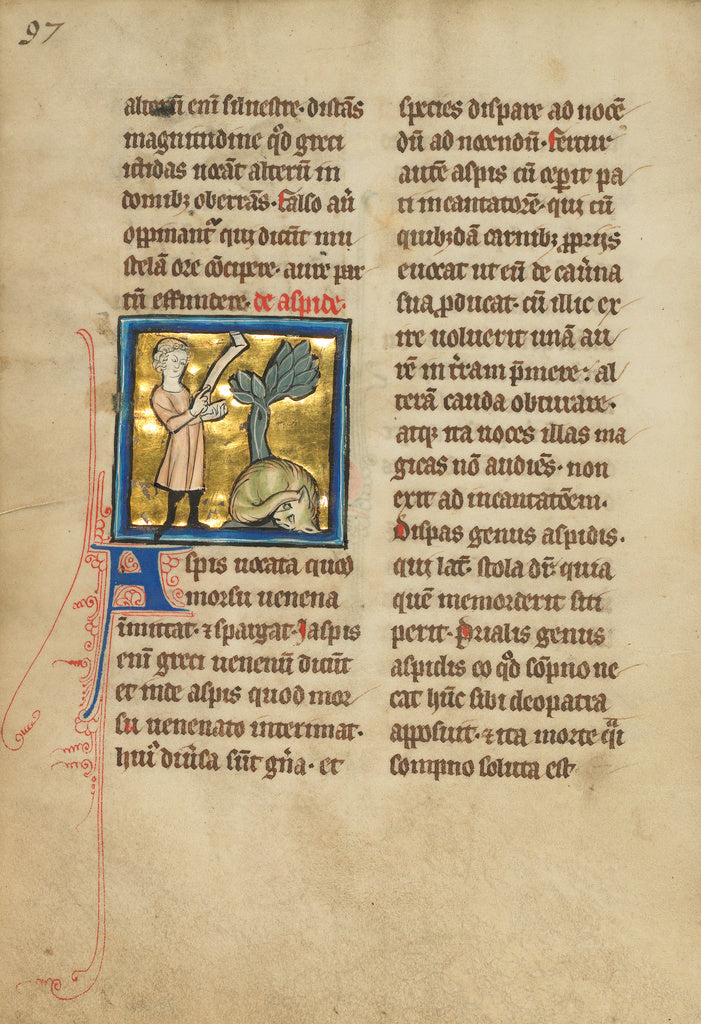 97
alterũ enĩ siluestre· distãs
magnitudine qd̃ greci
ictidas uocãt alterũ in
domibꝫ oberrãs· falso aũ
oppinant᷑ qui dicũt mu
stelã ore cõcipere· aure par
tũ effundere· de aspide·
Aspis uocata quod
morsu uenena
ĩmittat· ⁊ spargat· Jaspis
enĩ greci uenenũ dicũt
et inde aspis quod mor
su uenenato interimat·
huiꝰ diũsa sũt gña· et
species dispare ad nocẽ
dũ ad nocendũ· fertur
autẽ aspis cũ ceperit pa
ti incantatorẽ· qui cũ
quibꝫdã carnibꝫ ꝓprijs
euocat ut eũ de cauerna
sua ꝓducat· cũ illic ex
ire uoluerit unã au
rẽ in t̃ram p̃mere: al
terã cauda obturare·
atqꝫ ita uoces illas ma
gicas nõ audiẽs· non
exit ad incantatõem·
Dispas genus aspidis·
qui lat̃· stola dr̃· quia
quẽ memorderit siti
perit· Prialis genus
aspidis eo qd̃ sõpno ne
cat hũc sibi cleopatra
apposuit· ⁊ ita morte q̃i
sompno soluta est